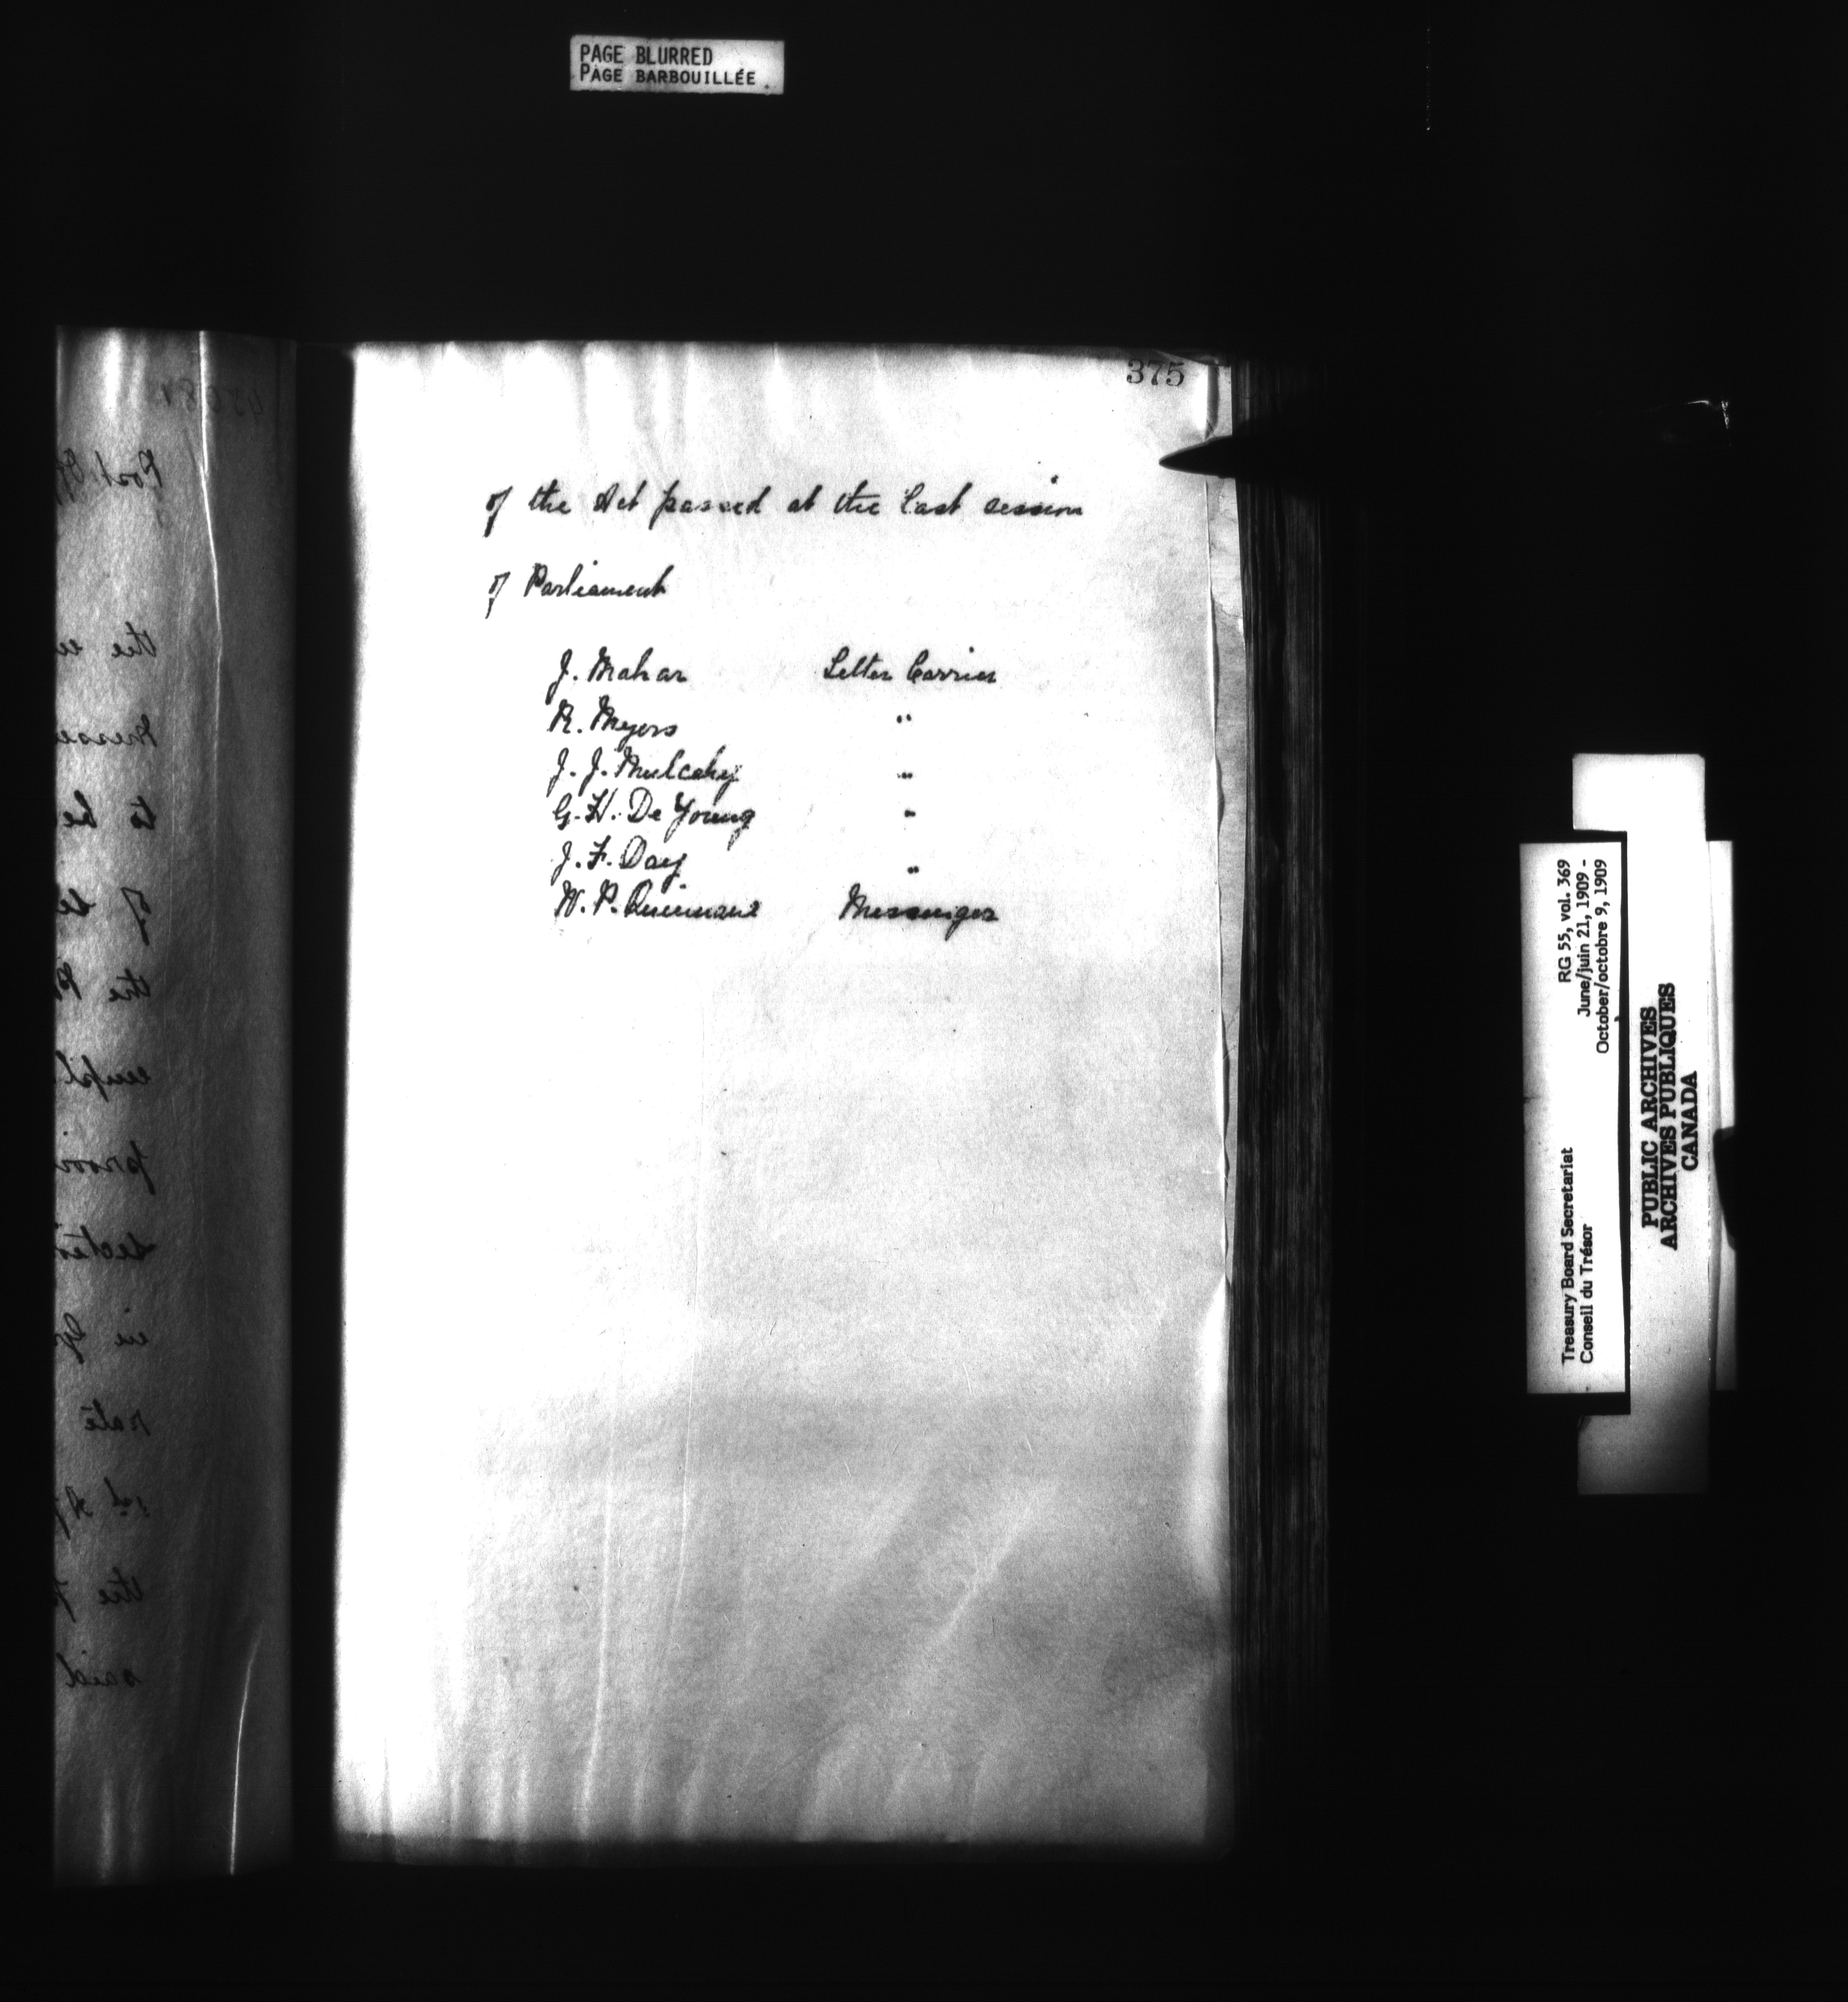 PAGE BLURRED
PAGE BARBOUILLÉE
375
of the Act passed at the last session
of Parliament
J. Mahar Letter Carrier
R. Myers "
J. J. Mulcahy "
G. H. De Young "
J. F. Day "
W. P. Messenger
RG 55, vol. 369
June/juin 21, 1909 -
October/octobre 9, 1909
Treasury Board Secretariat
Conseil du Trésor
PUBLIC ARCHIVES
ARCHIVES PUBLIQUES
CANADA